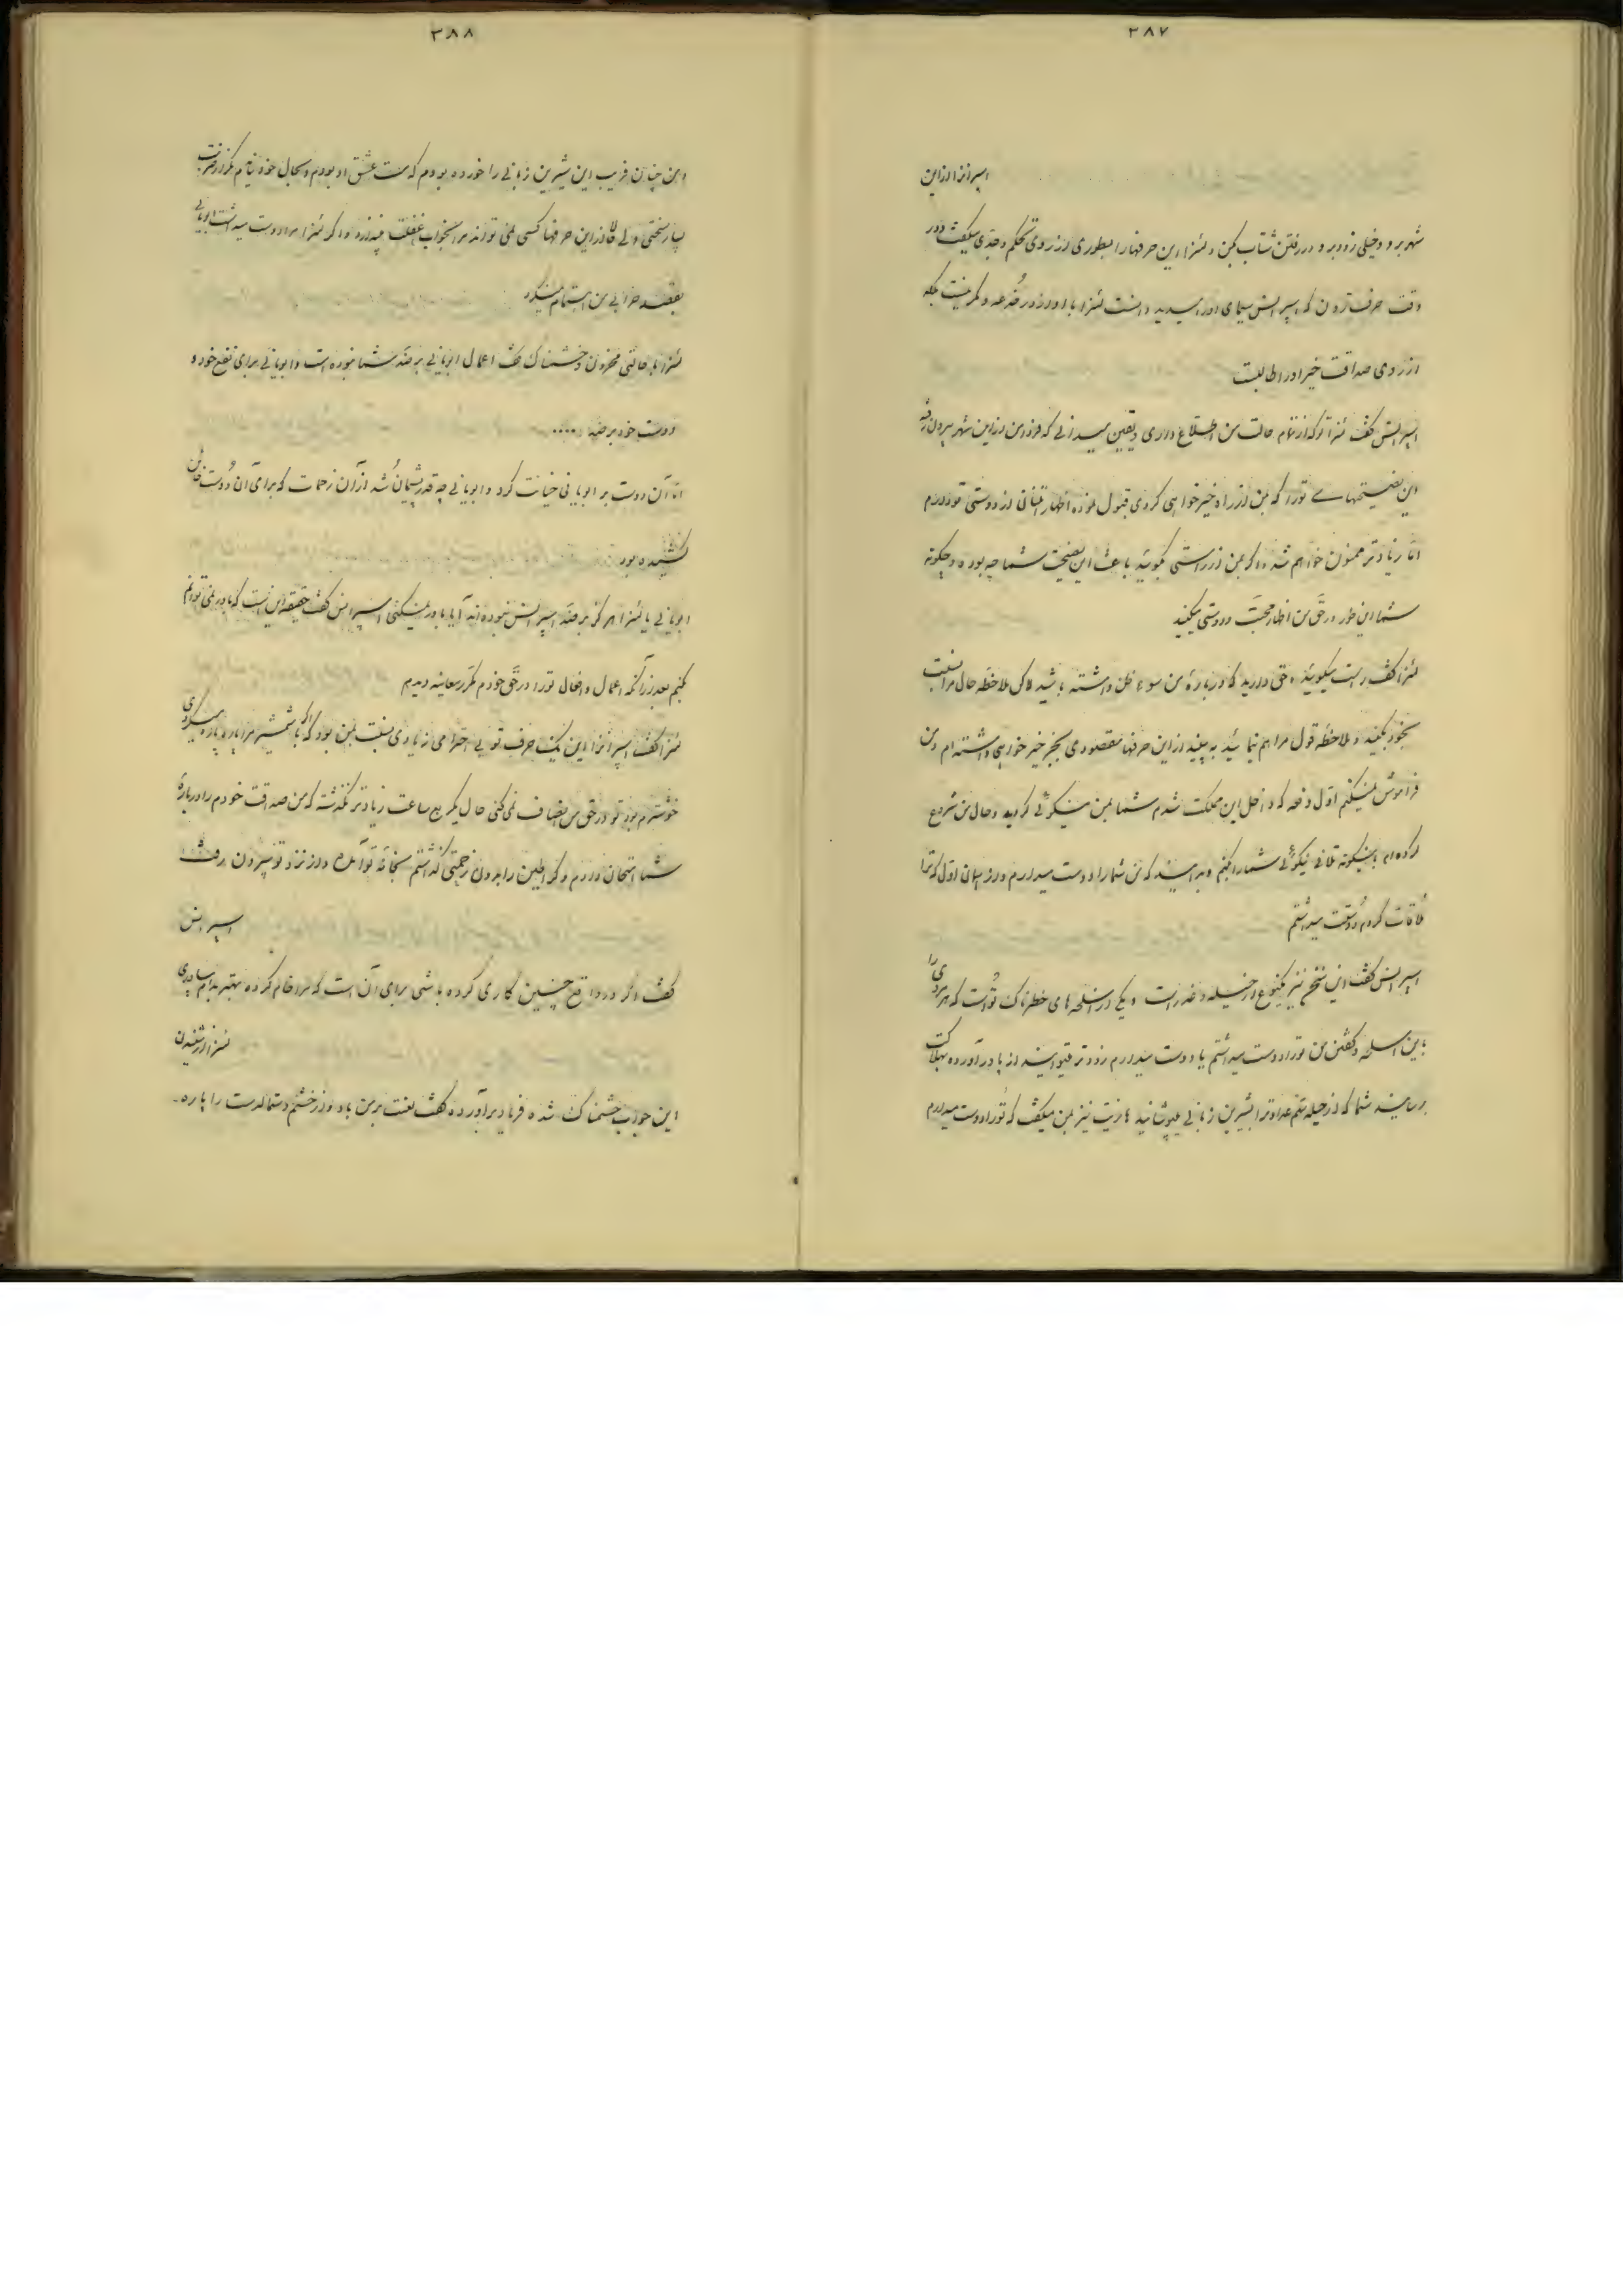 ۳۸۷
اسپرانزا ازین
شهر برو و خیلی زود برو و در رفتن شتاب کن و لنزا این حرفها را بطوری از روی تحکم و جدی میگفت و در
وقت حرف زدن که اسپرانس سیمای او را میدید دانست لنزا با او از در خدعه و مکر نیست بلکه
از روی صداقت خیر او را طالبست
اسپرانس گفت لنزا تو که از تمام حالت من اطلاع داری و یقین میدانی که فردا من ازین شهر بیرون رفته
این نصیحتهای تو را که بمن از راه خیرخواهی کردی قبول نموده اظهار امتنان از دوستی تو دارم
اما زیادتر ممنون خواهم شد اگر بمن از راستی بگوئید باعث این نصیحت شما چه بوده و چگونه
شما این طور در حق من اظهار محبت و دوستی میکنید
لنزا گفت راست میگوئید و حق دارید که درباره من سوء ظن داشته باشید لاکن ملاحظه حال مرا نسبت
بخود بکنید و ملاحظه قول مرا هم نمائید به بینید ازین حرفها مقصودی بجز خیرخواهی داشته ام و من
فراموش نمیکنم اول دفعه که داخل این مملکت شدم شما بمن نیکوئی کردید و حال من شروع
کرده ام باینگونه تلافی نیکوئی شما را بکنم و بدانید که من شما را دوست میدارم و از همان اول که ترا
ملاقات کردم دوستت میداشتم
اسپرانس گفت این سخن نیز یکنوع از حیله و غدر است و یکی از اسلحه های خطرناک تو است که هر مردی را
باین اسلحه و گفتن من تو را دوست میداشتم یا دوست میدارم زودتر میتوانید از پا در آورده بهلاکت
برسانید شما که از حیله ستم عداوت را بشیرین زبانی میپوشانید هاریت نیز بمن میگفت که تو را دوست میدارم
۳۸۸
و من چنان فریب این شیرین زبانی را خورده بودم که مست عشق او بودم و بحال خود نیامدم مگر از ضربت
بسیار سختی ولی حالا ازین حرفها کسی نمی تواند مرا بخواب غفلت بیندازد و اگر لنزا مرا دوست میداشت ابوبانی
بقصد خرابی من اهتمام نمیکرد
لنزا با حالتی محزون و خشمناک گفت اعمال ابوبانی بر ضد شما نبوده است و ابوبانی برای نفع خود و
دوست خود بر ضد ....
آه آن دوست بر ابوبانی خیانت کرد و ابوبانی چه قدر پشیمان شد از آن زحمات که برای آن دوست خائن
کشیده بود
ابوبانی یا لنزا هرگز بر ضد اسپرانس نبوده اند آیا باور نمیکنی اسپرانس گفت حقیقه این است که باور نمی توانم
بکنم بعد از آنکه اعمال و افعال تو را در حق خودم مکرر معاینه دیدم
لنزا گفت اسپرانزا این یک حرف تو بی احترامی زیادی نسبت بمن بود که اگر با شمشیر مرا پاره پاره میکردی
خوشترم بود تو در حق من انصاف نمی کنی حال یکربع ساعت زیادتر نگذشته که من صداقت خودم را درباره
شما امتحان دارم و گر اطین را بدون زحمتی گذاشتم بخانه تو آمد و از نزد تو بیرون رفت
اسپرانس
گفت اگر در واقع چنین کاری کرده باشی برای آن است که مرا خام کرده بهتر بدام بیاوری
لنزا از شنیدن
این جواب خشمناک شده فریاد برآورده گفت لعنت بر من باد و از خشم دستمال دست را پاره-